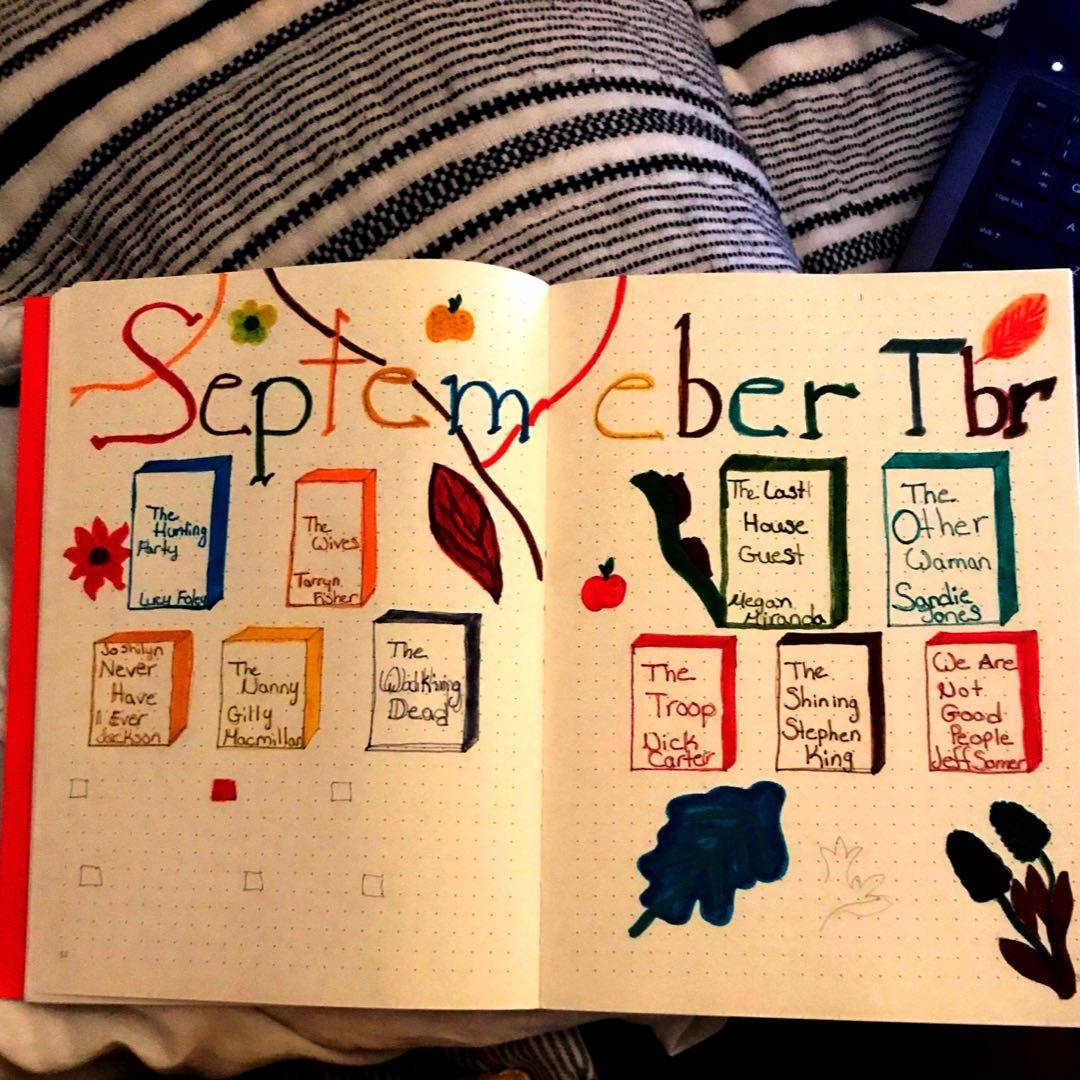 Septem
eber Tbr
The
Hunting
Party
Lucy Foley
The
Wives
Tarryn
Fisher
Joshilyn
Never
Have
I Ever
Jackson
The
Nanny
Gilly
Macmillan
The
Walking
Dead
The Last
House
Guest
Megan
Miranda
The
Other
Waman
Sandie
Jones
The
Troop
Nick
Carter
The
Shining
Stephen
King
We Are
Not
Good
People
Jeff Somer
esc
tab
caps lock
A
shift